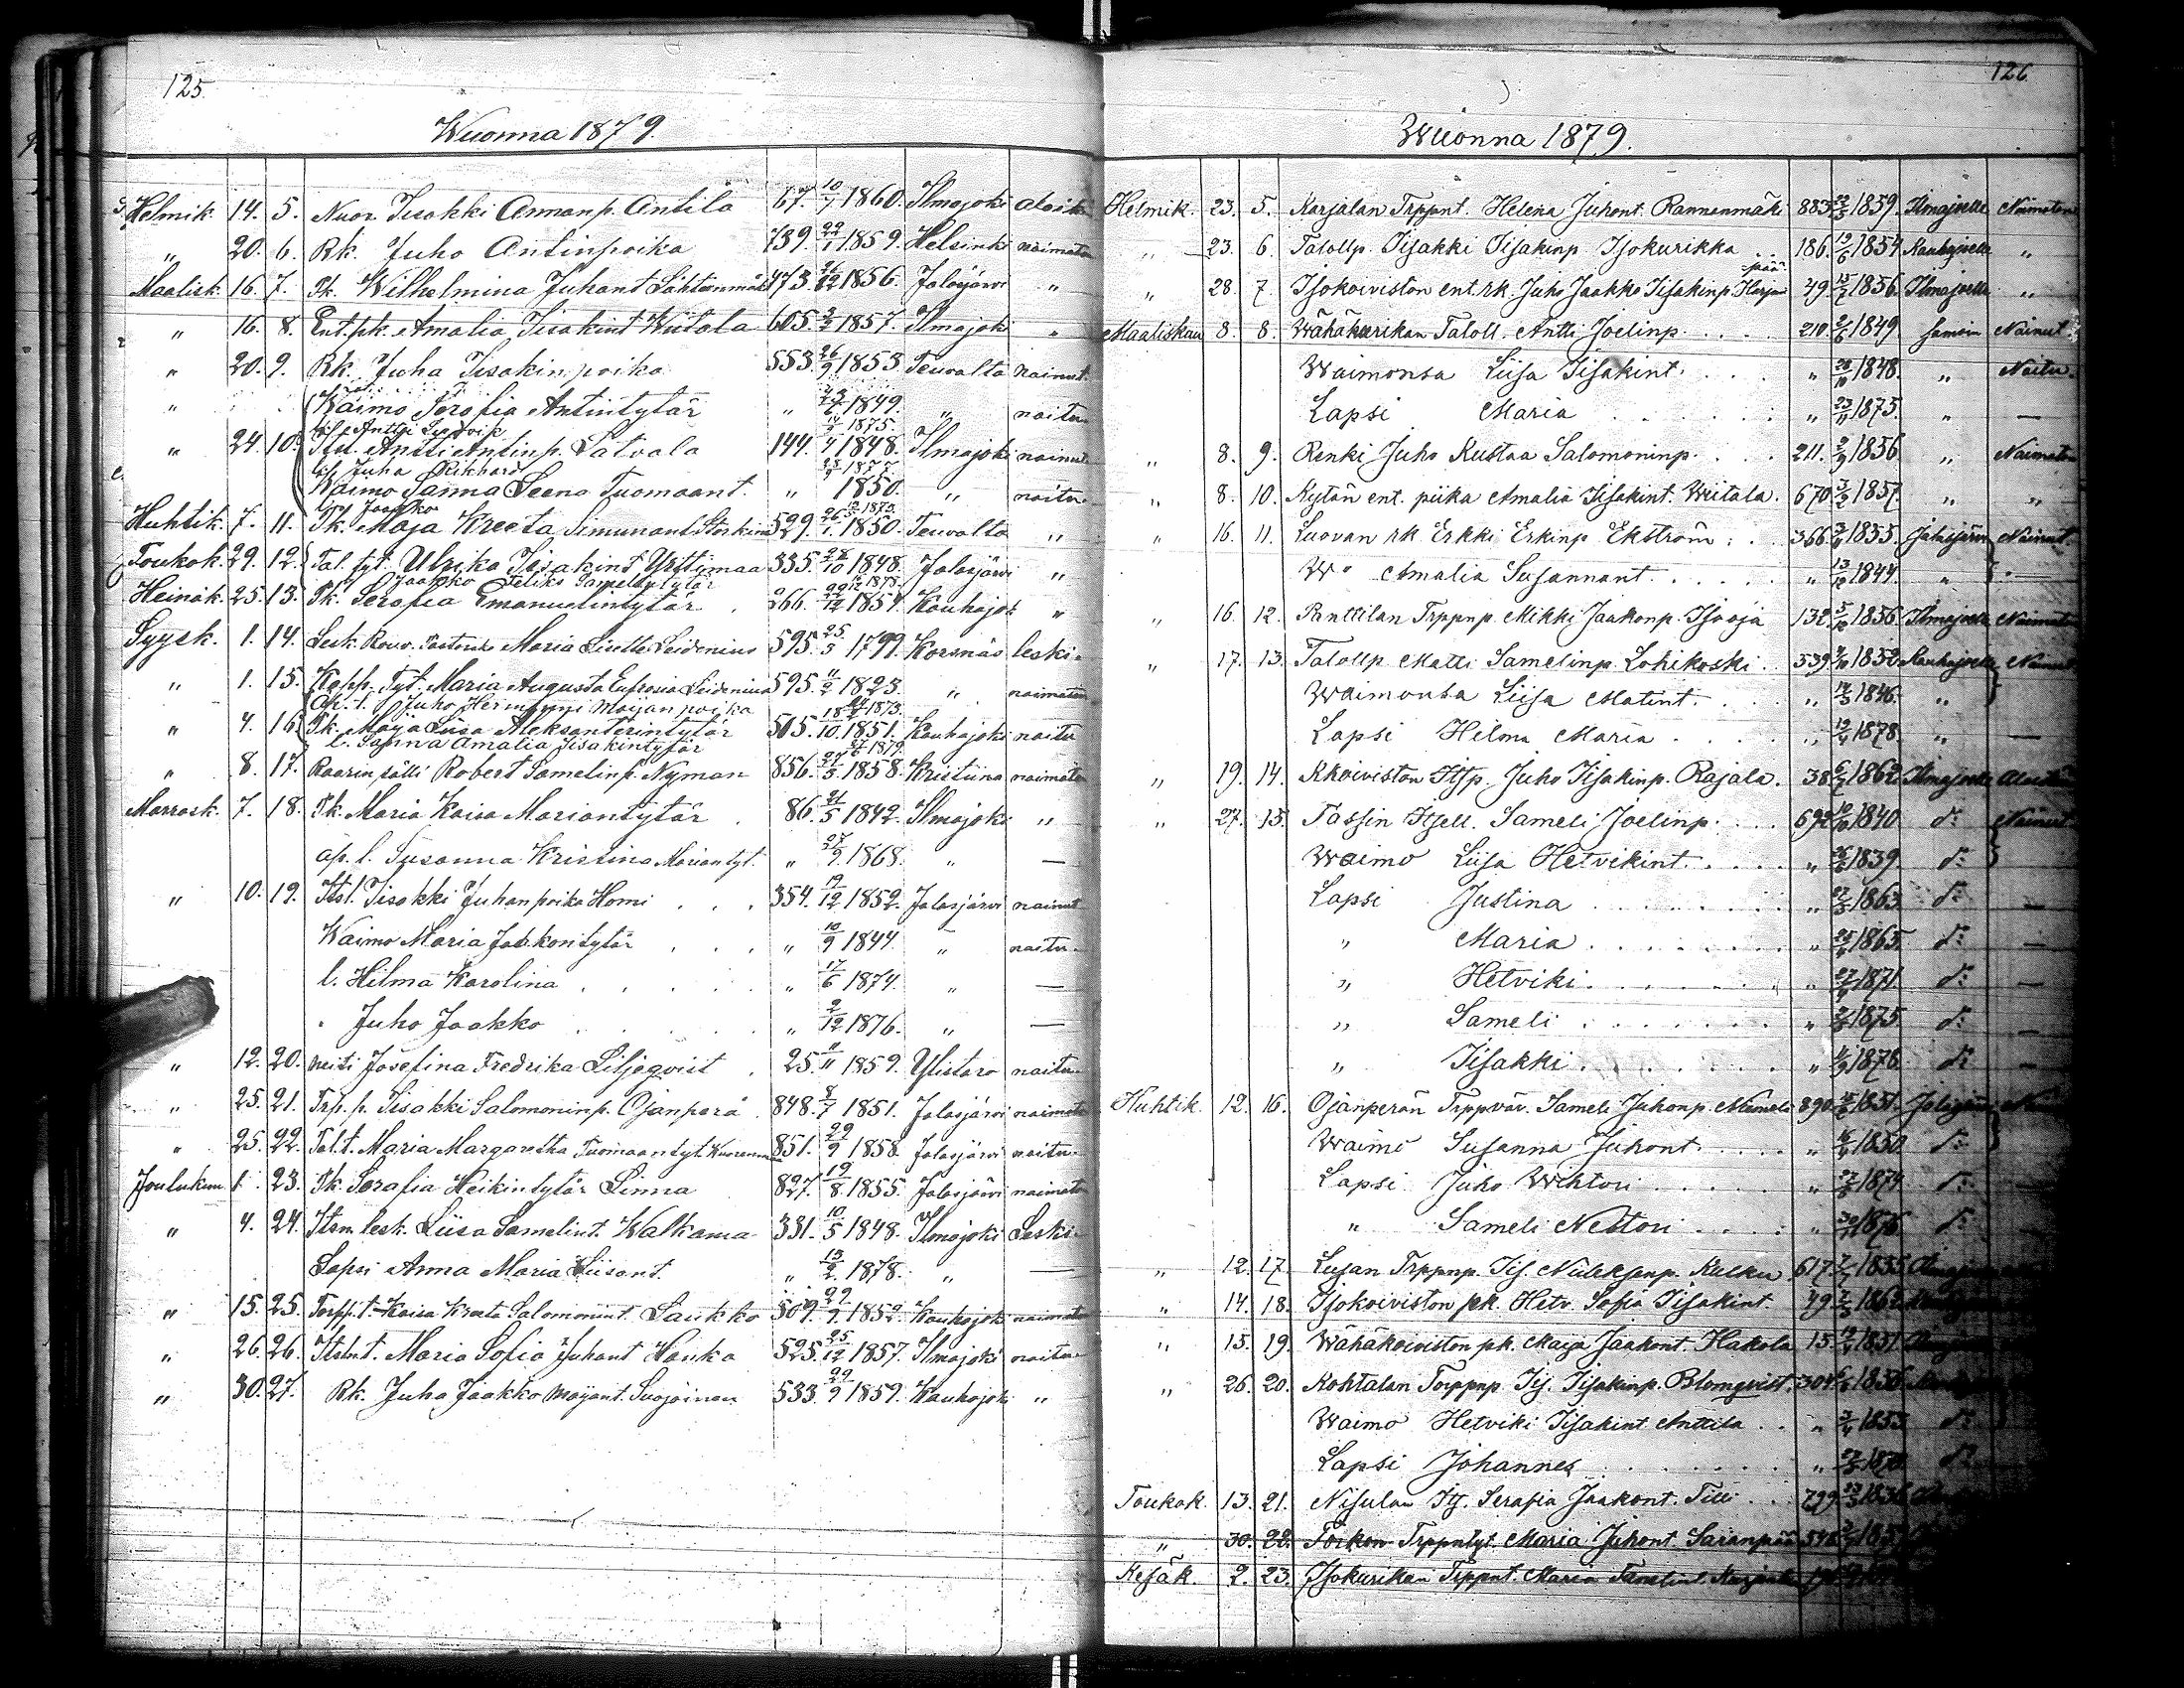 125.
Wuonna 1879.
Helmik. 14. 5. Nuor. Iisakki Annanp. Antila 67. 10/7 1860. Ilmajoki
" 20. 6. Rk. Juho Antinpoika 739. 22/1 1859. Helsinki naimaton
Maalisk. 16. 7. Pk. Wilhelmina Juhant 473. 26/12 1856. Jalasjärvi "
" 16. 8. Ent. pk. Amalia Iisakint Wiitala 605. 3/2 1857. Ilmajoki "
" 20. 9. Rk. Juha Iisakinpoika 553. 26/9 1853. Teuvalta nainut.
" Waimo Serafia Antintytär " 1849. " naitu
1875.
" 24. 10. Itsl. Antti Antinp. Latvala 144. 1848. Ilmajoki nainut
l. Juha Rikhard 1877.
Waimo Sanna Leena Tuomaant. " 1850. " naitu
l. Jaakko
Huhtik. 7. 11. Pk. Maja Kreeta Simunant 529. 1850. Teuvalta "
Toukok. 29. 12. Tal. tyt. Ulrika Iisakint Yrttimaa 335. 27/10 1848. Jalasjärvi "
Jaakko Feliks
Heinäk. 25. 13. Pk. Serafia Emanuelintytär . 266. 22/12 1857. Kauhajoki "
Syysk. 1. 14. Lesk. Rouv. Maria Lisette Leidenius 595. 25/5 1799. Korsnäs leski.
" 1. 15. Kapp. Tyt. Maria Augusta Eufrosia Leidenius 595. 11/2 1823. " naimaton
Ap. l. Juho Hermanni Maijanpoika 1873.
" 4. 16. Pk. Maija Liisa Aleksanterintytär 505. 18/10 1851. Kauhajoki naitu
l. Sanna Amalia Iisakintytär 1879.
" 8. 17. Kaarin sälli Robert Samelinp. Nyman 856. 27/5 1858. Kristiina naimaton
Marrask. 7. 18. Pk. Maria Kaisa Mariantytär . 86. 21/5 1842. Ilmajoki "
ap. l. Susanna Kristina Mariantyt. " 27/9 1868. " —
" 10. 19. Itsl. Iisakki Juhanpoika Homi . . . 354. 19/12 1852. Jalasjärvi nainut
Waimo Maria Jaakontytär . . . " 10/9 1844. " naitu.
l. Hilma Karolina . . . . . " 17/6 1874. " —
" Juho Jaakko . . . . . " 2/12 1876. " —
" 12. 20. Neiti Josefina Fredrika Liljeqvist . 25. 11/11 1859. Ylistaro naitu.
" 25. 21. Trp. p. Iisakki Salomoninp. Ojanperä . 848. 8/7 1851. Jalasjärvi naimaton
" 25. 22. Tal. t. Maria Margaretha Tuomaantyt. 851. 29/9 1858. Jalasjärvi naitu.
Joulukuu 1. 23. Pk. Serafia Heikintytär Linna 827. 19/8 1855. Jalasjärvi naimaton
" 4. 24. Itsm. lesk. Liisa Samelint. Walkama 331. 10/5 1848. Ilmajoki Leski.
Lapsi Anna Maria Liisant. " 13/2 1878. " —
" 15. 25. Torpp. t. Kaisa Kreeta Salomonint. Laukko 509. 29/9 1852. Kauhajoki naimaton
" 26. 26. Itslnt. Maria Sofia Juhant Hanka 525. 25/12 1857. Ilmajoki naitu.
" 30. 27. Rk. Juho Jaakko Majant. Suojoinen 533. 29/9 1859. Kauhajoki "
126
Wuonna 1879.
Helmik. 23. 5. Karjalan Trppnt. Helena Juhont. Rannanmäki 883. 1859. Ilmajoelle Naimaton
" 23. 6. Talollp. Iisakki Iisakinp. Isokurikka 186. 19/6 1854. Kauhajoelle "
" 28. 7. Isokoiviston ent. rk. Juho Jaakko Iisakinp. Harjunpää 49. 15/7 1856. Ilmajoelle "
Maaliskuu 8. 8. Wähäkurikan Taloll. Antti Joelinp. . . . 210. 2/6 1849. samoin Nainut
Waimonsa Liisa Iisakint. . . . " 28/10 1848. " Naitu.
Lapsi Maria . . . . . . " 23/11 1875. " —
" 8. 9. Renki Juho Kustaa Salomoninp. . . . 211. 2/9 1856 " Naimaton
" 8. 10. Kytän ent. piika Amalia Iisakint. Wiitala. 670. 3/2 1857. " "
" 16. 11. Luovan rk. Erkki Erkinp. Ekström . . 366. 1855. Jalasjärvi Nainut.
W:o Amalia Susannant. . . . . . " 13/12 1844. " —
" 16. 12. Panttilan Trppnp. Mikki Jaakonp. Isooja 132. 5/10 1856. Ilmajoelle Naimaton
" 17. 13. Talollp. Matti Samelinp. Lohikoski. 539. 1852. Kauhajoelle Nainut
Waimonsa Liisa Matint. . . . " 14/3 1846. "
Lapsi Hilma Maria . . . . " 19/4 1878. " —
" 19. 14. Kkoiviston Itsp. Juho Iisakinp. Rajala. 38. 6/7 1862. Ilmajoelle
" 27. 15. Tassin Itsell. Sameli Joelinp. . . . 692. 10/10 1840 d:o Nainut
Waimo Liisa Hetvikint. . . . . " 1839. d:o
Lapsi Justina . . . . . . . . " 1863 d:o —
" Maria . . . . . . . . " 1865. d:o —
" Hetviki. . . . . . . . " 1871. d:o —
" Sameli . . . . . . . . " 1875 d:o —
" Iisakki . . . . . . . . " 1878. d:o —
Huhtik. 12. 16. Ojanperän Trppväv. Sameli Juhonp. 890. 1851. Jalasjärvi
Waimo Susanna Juhont. . . . . " 1850. d:o
Lapsi Juho Wihtori . . . . . " 1874 d:o
" Sameli Nestori . . . . " 1876 d:o
" 12. 17. Lusan Trppnp. Iis. Kulku 617. 1855
" 14. 18. Isokoiviston pk. Hetv. Sofia Iisakint. 49.
" 15. 19. Wähäkoiviston pk. Maija Jaakont. Hakola 15. 1851.
" 26. 20. Kohtalan Torppnp. Iis. Iisakinp. Blomqvist. 304. 1856
Waimo Hetviki Iisakint. Anttila . . " 1853 d:o
Lapsi Johannes . . . . . . . " d:o
Toukok. 13. 21. Nisulan Its. Serafia Jaakont. Tilli . . . 799.
" 30. 22. Torkon Trppntyt. Maria Juhont. Saranpää
Kesäk. 2. 23. Isokurikan Trppnt. Maria